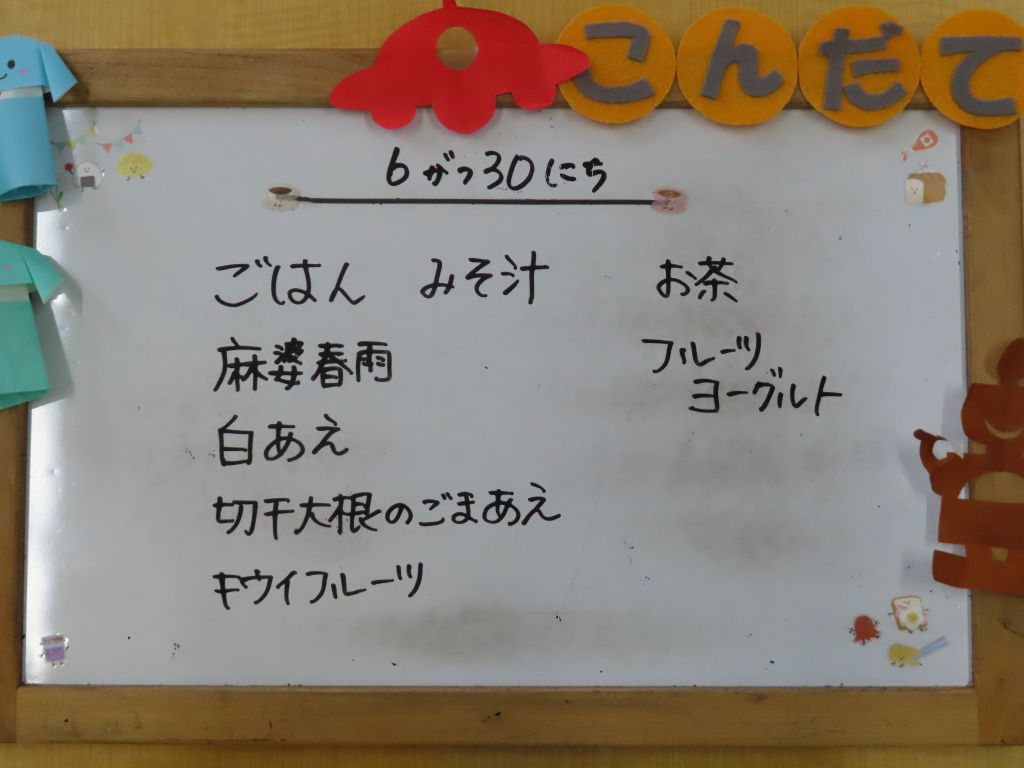 こんだて
6がつ30にち
ごはん みそ汁
麻婆春雨
白あえ
切干大根のごまあえ
キウイフルーツ
お茶
フルーツ
ヨーグルト